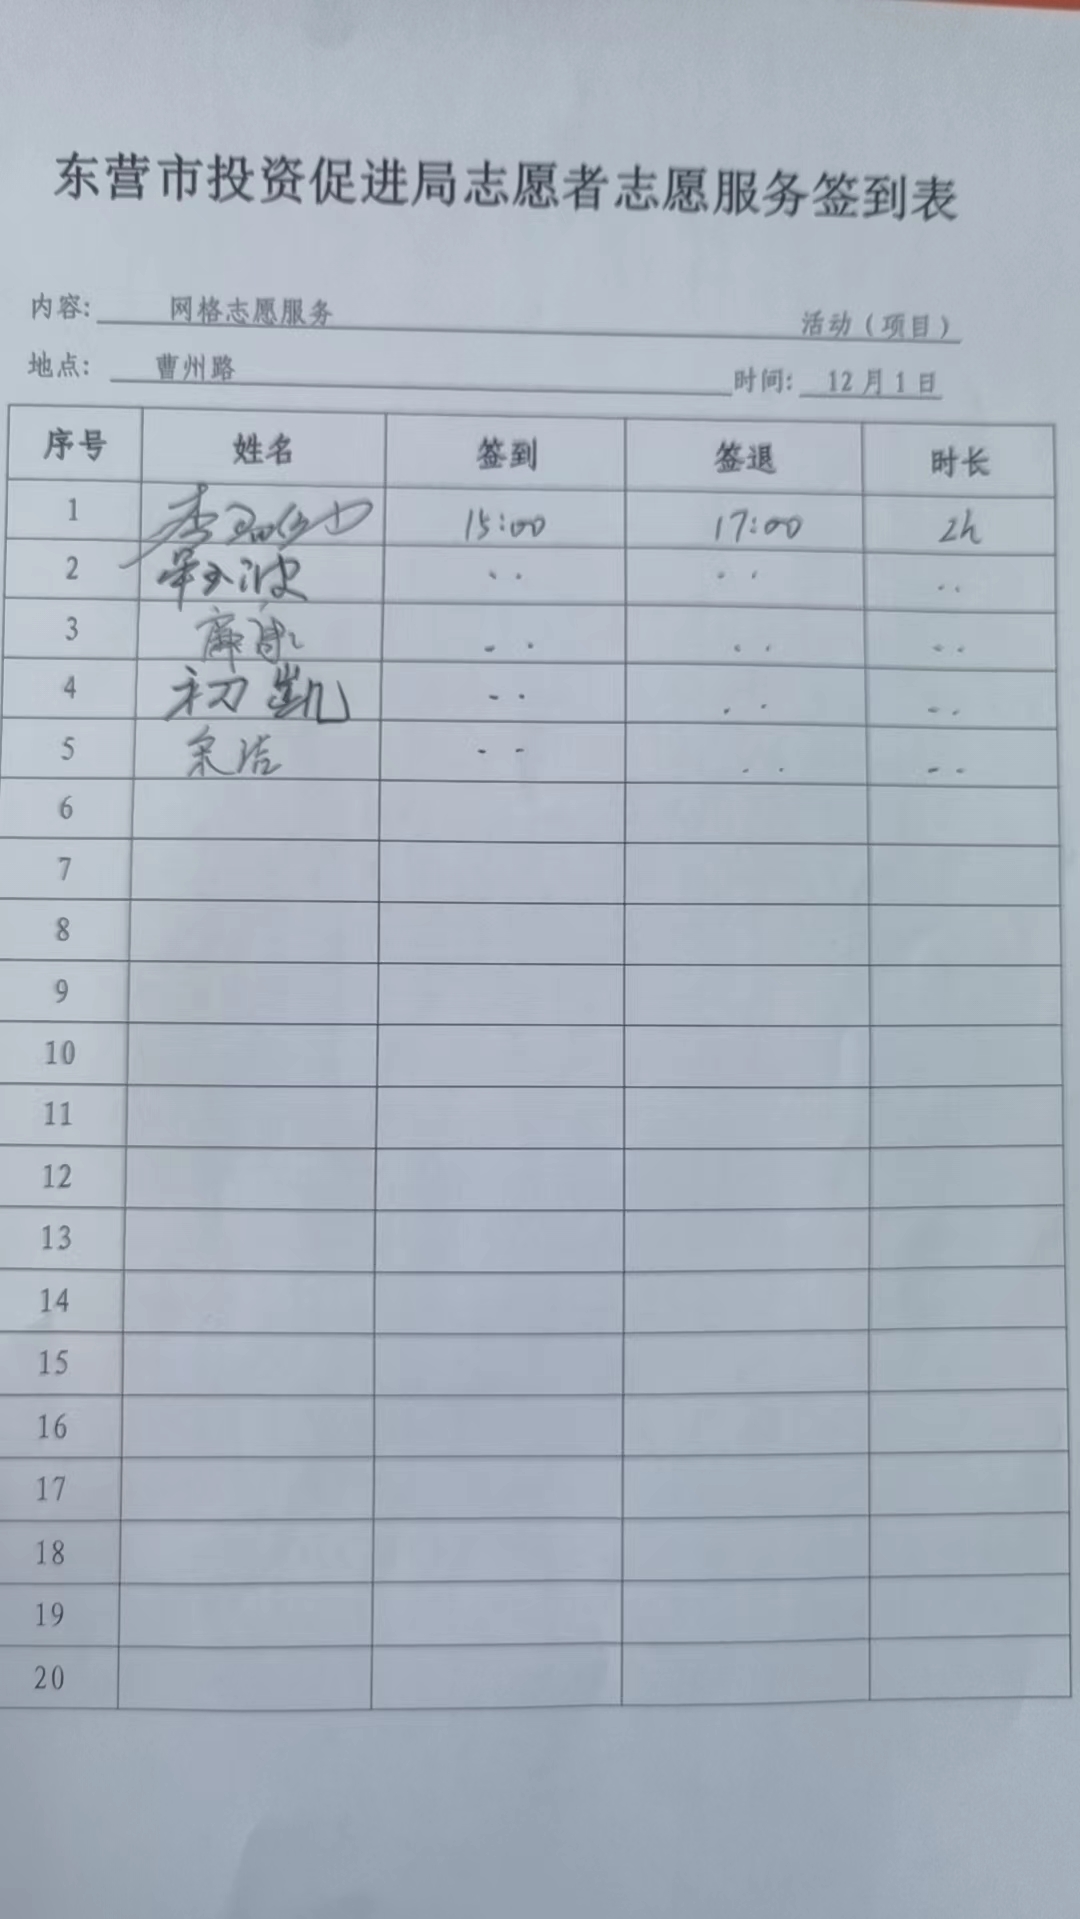 东营市投资促进局志愿者志愿服务签到表
内容: 网格志愿服务 活动（项目）
地点: 曹州路 时间: 12月1日
序号 姓名 签到 签退 时长
1 李 15:00 17:00 2h
2 波 〃 〃 〃
3 〃 〃 〃
4 初凯 〃 〃 〃
5 洁 〃 〃 〃
6
7
8
9
10
11
12
13
14
15
16
17
18
19
20